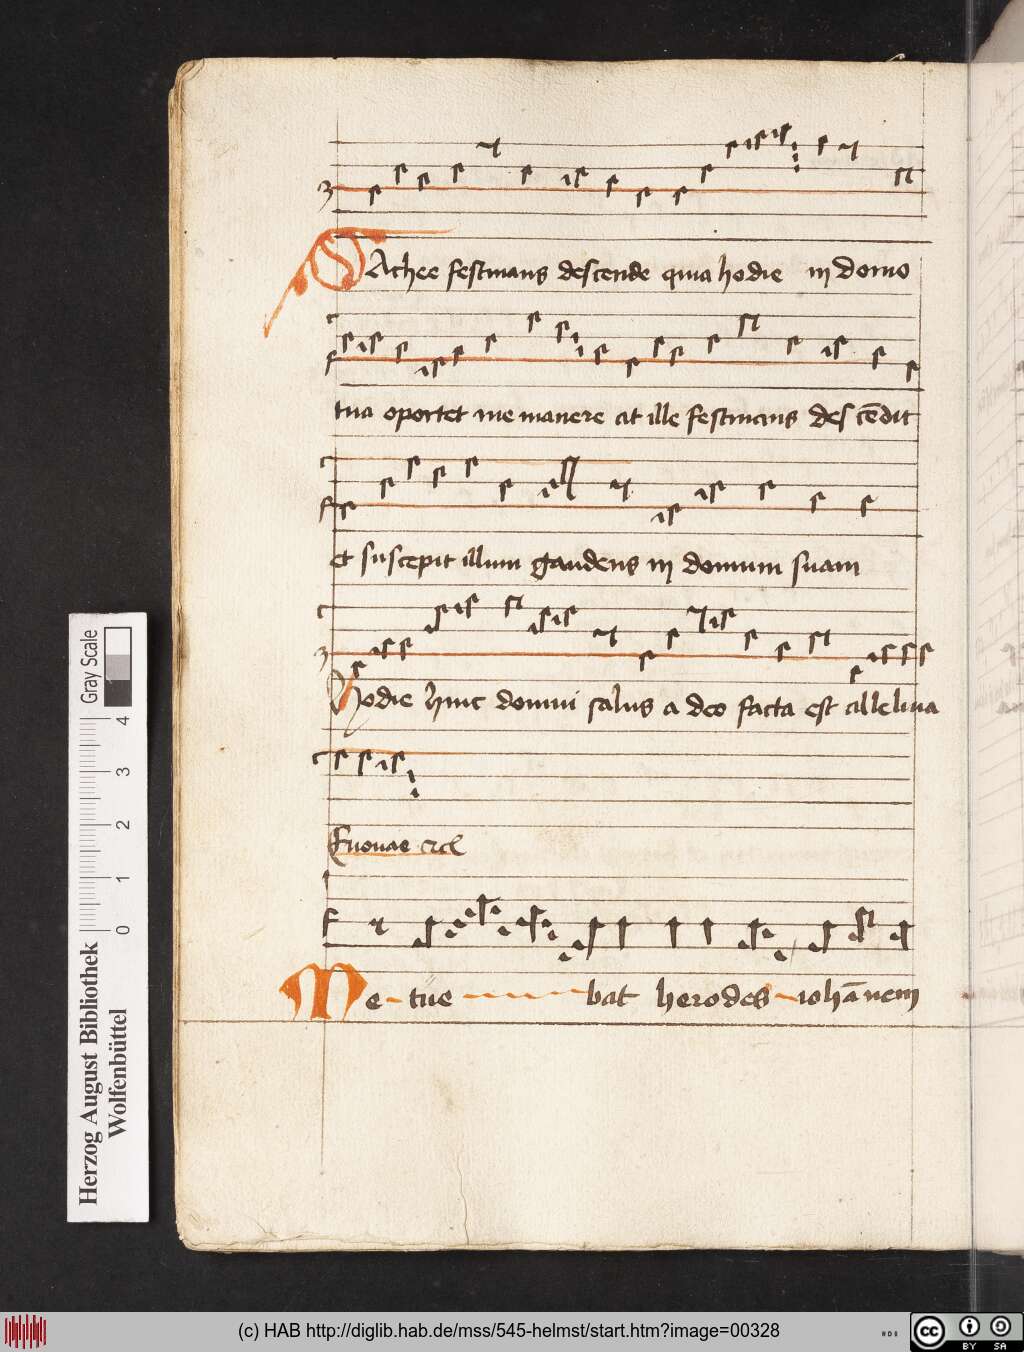 Zachee festinans descende quia hodie in domo
tua oportet me manere at ille festinans descēdit
et suscepit illum gaudens in domum suam
Hodie huic domui salus a deo facta est alleluia
Euouae
Me-tue - - - - bat herodes - iohānem
Gray Scale
4
3
2
1
0
Herzog August Bibliothek
Wolfenbüttel
(c) HAB http://diglib.hab.de/mss/545-helmst/start.htm?image=00328
cc BY SA